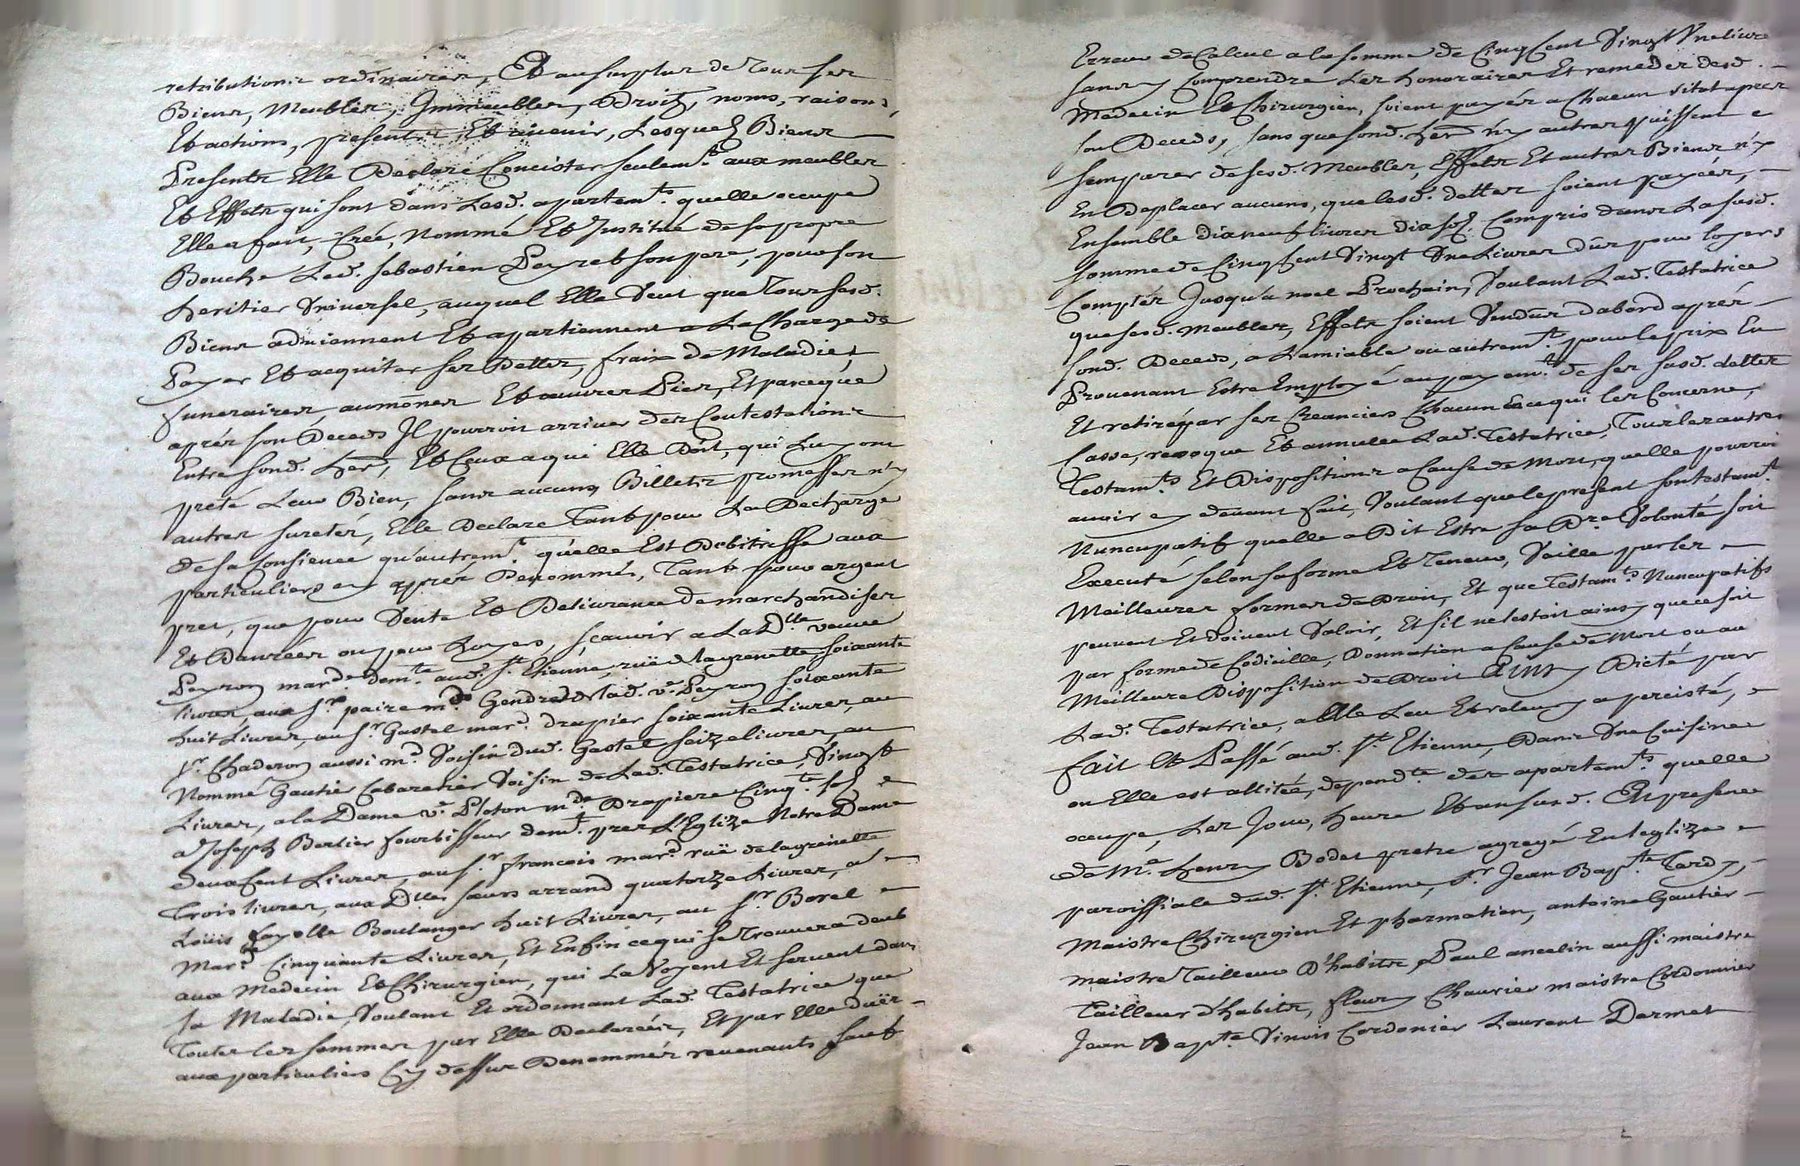 retributions ordinaires, Et au surplus de tous ses
Biens, Meubles, Immeubles, Droitz, noms, raisons,
Et actions, presents Et avenir, Lesquelz Biens
Presents Elle Declare Concister seulemt. aux meubles
Et Effets qui sont dans Lesd. apartemts. quelle occupe
Elle a fait, Créé, Nommé Et Institué de sa propre
Bouche Led. sebastien Peyret son pere, pour son
heritier Universel, auquel Elle Veut que tous sesd.
Biens adviennent Et apartiennent a La Charge de
Payer Et acquiter ses Dettes, fraix de Maladie,
funeraires aumones Et œuvres Pies, Et parceque
aprés son Deceds Il pourroit arriver des Contestations
Entre sond. her. Et Ceux a qui Elle Doit, qui Luy ont
preté Leur Bien, sans aucuns Billets promesses ny
autres suretés, Elle Declare tant pour La Decharge
de sa Consience qu'autremt. qu'elle Est Debitresse aux
particuliers cy aprés Denommés, tant pour argent
pret, que pour Vente Et Delivrance de marchandises
Et Danrées ou pour Loyers, sçavoir a La Dlle. veuve
Peyron marde. demte. aud. St. Etienne, ruë de la grenette soixante
livres, aux srs. paire mds. Gendres de lad. ve. Peyron soixante
huit Livres, au sr. Gastel mard. drapier soixante Livres, au
sr. Chaderon aussi md. Voisin dud. Gastel saize livres, au
Nommé Gautier Cabaretier Voisin de Lad. Testatrice, Vingt
Livres, a la Dame ve. Ploton mde. Drapiere Cinqte. solz
a Joseph Berlier fourbisseur demt. prez L'Eglize Notre Dame
deux Cent Livres, au sr. francois mard. ruë de la grenette
Trois livres, aux Dlles. sœurs arrand quatorze Livres, a
Loüis fayolle Boulanger huit Livres, au sr. Borel
mard. Cinquante Livres, Et Enfin ce qui se trouvera deub
aux Medecin Et Chirurgien, qui La Voyent Et servent dans
sa Maladie, Voulant Et ordonnant Lad. Testatrice que
toutes les sommes par Elle Declarées, Et par Elle duës
aux particuliers Cy dessus Denommés revenants sauf
Erreur de Calcul a la somme de Cinq Cent Vingt Une livre
sans y Comprendre Les honoraires Et remedes desd.
Medecin Et Chirurgien, soient payés a Chacun sitot aprez
son Deceds, sans que sond. her. ny autres puissent
semparer de sesd. Meubles, Effets Et autres Biens ny
En Deplacer aucuns, que lesd. dettes soient payées,
Ensemble dix neuf livres dix solz Compris dans La susd.
somme de Cinq Cent Vingt Une Livres dûs pour loyers
Comptés Jusqu'a noel Prochain, Voulant Lad. Testatrice
que sesd. Meubles, Effets soient Vendus dabord aprés
sond. Deceds, a Lamiable ou autremt. pour le prix En
Provenant Estre Employé au payemt. de ses susd. dettes
Et retiré par ses Creanciers Chacun En ce qui les Concerne,
Casse, revoque Et annulle Lad. Testatrice, Tous les autres
Testamts. Et Dispositions a Cause de Mort, quelle pourroit
avoir cy devant fait, Voulant que le présent son testamt.
Nuncupatif quelle a Dit Estre sa Dre. Volonté soit
Executé selon sa forme Et teneur, Vaille par les
Meilleures formes de Droit, Et que Testamts. Nuncupatifs
peuvent Et doivent Valoir, Et sil ne lestoit ainsy que ce soit
par forme de Codicille, Donnation a Cause de Mort ou au
Meilleure Disposition de Droit Ainsy Dicté par
Lad. Testatrice, a Elle Leu Et releu y a percisté,
Fait Et Passé aud. St. Etienne, Dans Une Cuisine
ou Elle est allitée, dependte. des apartemts. quelle
occupe, Les Jour, heure Et an susd. En presence
de Me. Henry Bodet pretre agregé En leglize
paroissiale dud. St. Etienne, sr. Jean Bapte. Tardy,
Maistre Chirurgien Et pharmatien, antoine Gautier
maistre tailleur D'habits, Paul ancelin aussi maistre
Tailleur d'habits, fleury Chauvier maistre Cordonnier
Jean Bapte. Vinois Cordonier Laurent Dermet